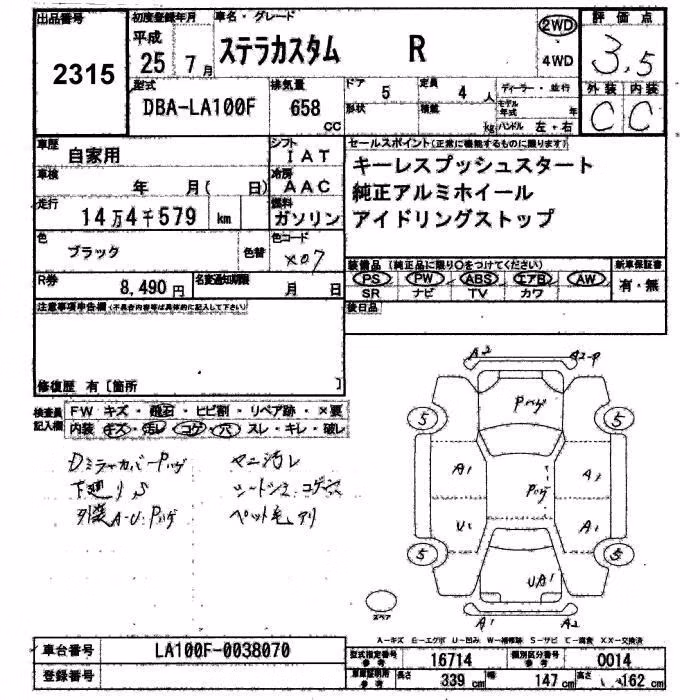 出品番号
2315
初度登録年月
平成
25年7月
車名・グレード
ステラカスタム R
2WD
4WD
評価点
3.5
外装 内装
C C
型式
DBA-LA100F
排気量
658
cc
ドア
5
定員
4人
ディーラー・並行
形状
積載
kg
モデル年式
年
ハンドル 左・右
車歴
自家用
シフト
IAT
車検
年 月( 日)
冷房
AAC
走行
14万4千579 km
燃料
ガソリン
色
ブラック
色替
色コード
X07
R券
8,490円
名変通知期限
月 日
セールスポイント(正常に機能するものに限ります)
キーレスプッシュスタート
純正アルミホイール
アイドリングストップ
装備品 (純正品に限り○をつけてください)
PS PW ABS エアB AW
SR ナビ TV カワ
新車保証書
有・無
後日品
注意事項申告欄(不具合内容等は具体的に記入して下さい)
修復歴 有[箇所 ]
検査員記入欄
FW キズ・飛石・ヒビ割・リペア跡・×要
内装 キズ・汚レ・コゲ・穴・スレ・キレ・破レ
Dミラーカバー Pハゲ
下廻りS
外装A・U・Pハゲ
マニ汚レ
シートシミ・コゲ穴
ペット毛アリ
A2 A2-P
Pハゲ
5 5
A1 A2
Pハゲ
U1 A1
5 5
UA1
A1 A2
スペア
A-キズ E-エクボ U-凹み W-補修跡 S-サビ C-腐食 XX-交換済
車台番号
LA100F-0038070
登録番号
型式指定番号
参考
16714
類別区分番号
参考
0014
参考
長さ
339 cm
幅
147 cm
高さ
162 cm